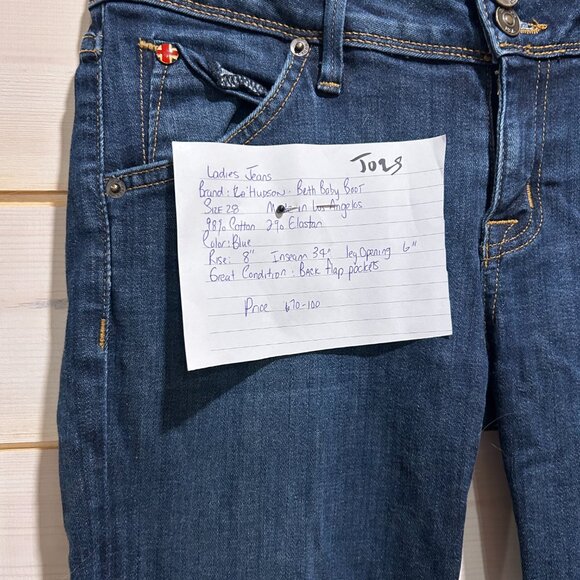 Ladies Jeans
J029
Brand: Hudson. Beth Baby Boot
Size 28 Made in Los Angeles
98% Cotton 2% Elastan
Color: Blue
Rise: 8" Inseam 34" leg Opening 6"
Great Condition. Back flap pockets
Price 70-100